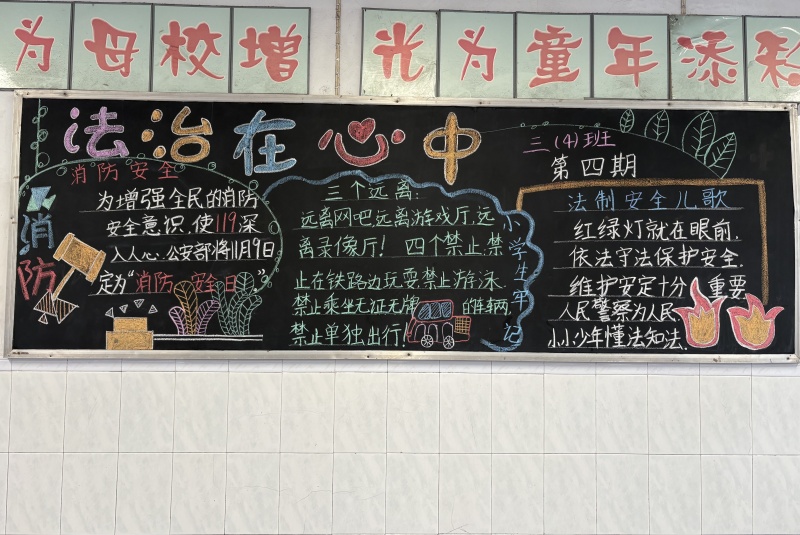 为母校增光为童年添彩
法治在心中
三(4)班
第四期
消防安全
为增强全民的消防
安全意识,使119深
入人心,公安部将11月9日
定为“消防安全日”。
消防
三个远离:
远离网吧,远离游戏厅,远
离录像厅! 四个禁止:禁
止在铁路边玩耍,禁止游泳,
禁止乘坐无证无牌的车辆,
禁止单独出行!
小学生牢记
法制安全儿歌
红绿灯就在眼前,
依法守法保护安全.
维护安定十分重要
人民警察为人民
小小少年懂法知法.